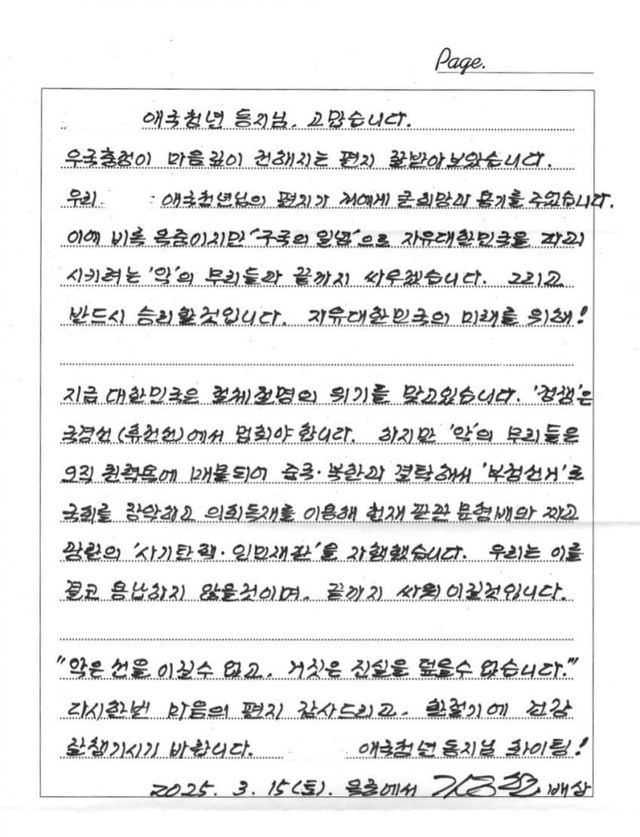 Page.
애국청년 동지님. 고맙습니다.
우국충정이 마음깊이 전해지는 편지 잘받아보았습니다.
우리 애국청년님의 편지가 저에게 큰희망과 용기를 주었습니다.
이에 비록 옥중이지만 "구국의 일념"으로 자유대한민국을 파괴
시키려는 '악'의 무리들과 끝까지 싸우겠습니다. 그리고
반드시 승리할것입니다. 자유대한민국의 미래를 위해!
지금 대한민국은 절체절명의 위기를 맞고있습니다. '정쟁'은
국경선(휴전선)에서 멈춰야 합니다. 하지만 '악'의 무리들은
오직 권력욕에 매몰되어 중국·북한과 결탁해서 '부정선거'로
국회를 장악하고 의회독재를 이용해 헌재 문형배와 짜고
광란의 '사기탄핵·인민재판'을 자행했습니다. 우리는 이를
결코 용납하지 않을것이며, 끝까지 싸워이길것입니다.
"악은 선을 이길수 없고, 거짓은 진실을 덮을수 없습니다."
다시한번 마음의 편지 감사드리고, 환절기에 건강
잘챙기시기 바랍니다. 애국청년동지님 화이팅!
2025. 3. 15(토). 옥중에서 배상